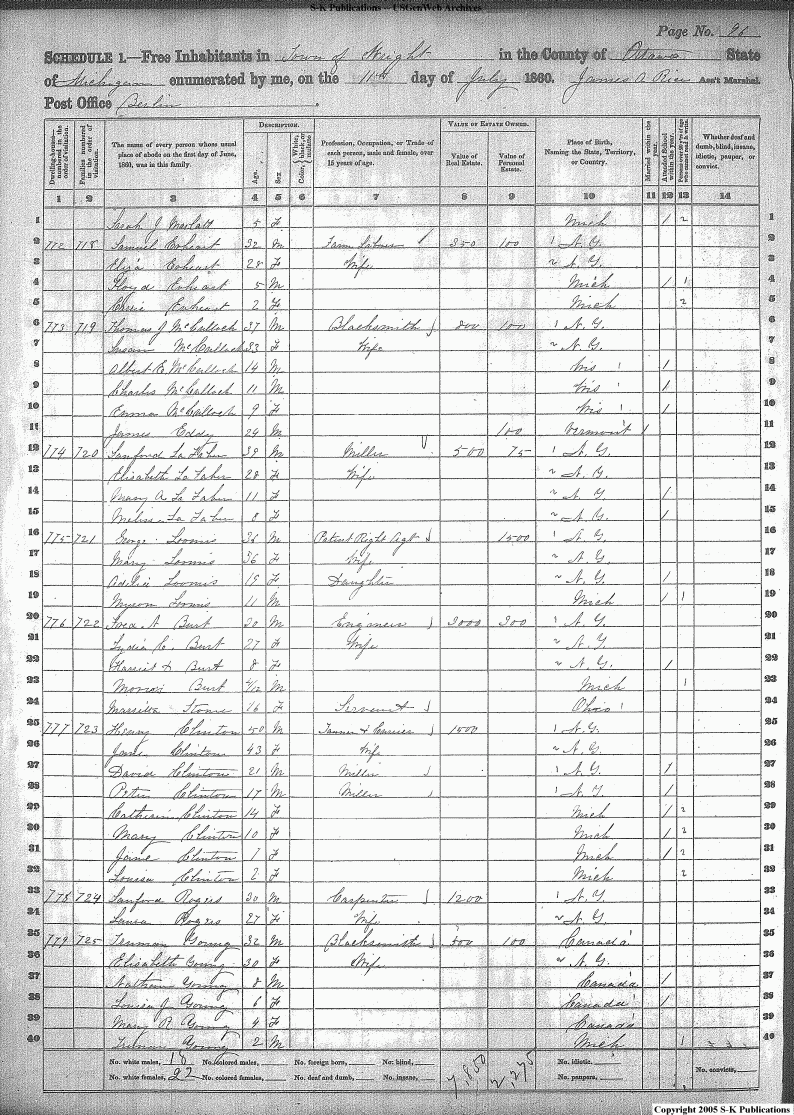 S-K Publications - USGenWeb Archives
Page No. 96
SCHEDULE 1.—Free Inhabitants in Town of Wright in the County of Ottawa State
of Michigan enumerated by me, on the 11th day of July 1860. James A Rice Ass't Marshal.
Post Office Berlin
Dwelling-houses—numbered in the order of visitation.
Families numbered in the order of visitation.
The name of every person whose usual place of abode on the first day of June, 1860, was in this family.
DESCRIPTION.
Age.
Sex.
Color, White, black, or mulatto
Profession, Occupation, or Trade of each person, male and female, over 15 years of age.
VALUE OF ESTATE OWNED.
Value of Real Estate.
Value of Personal Estate.
Place of Birth, Naming the State, Territory, or Country.
Married within the year.
Attended School within the year.
Persons over 20 y'rs of age who cannot read & write.
Whether deaf and dumb, blind, insane, idiotic, pauper, or convict.
1 2 3 4 5 6 7 8 9 10 11 12 13 14
1 Sarah J Marlatt 5 F Mich / 2 1
2 772 718 Samuel 32 M Farm Laborer 350 100 1 N.Y. 2
3 Eliza 28 F Wife N.Y. 3
4 Floyd 5 M Mich / 1 4
5 2 F Mich 2 5
6 773 719 Thomas J McCulloch 37 M Blacksmith 800 100 1 N.Y. 6
7 Susan McCulloch 33 F Wife N.Y. 7
8 Albert E McCulloch 14 M Wis / 8
9 Charles McCulloch 11 M Wis / 9
10 Emma McCulloch 9 F Wis / 10
11 James Eddy 24 M 100 Vermont 1 11
12 774 720 Sanford La Faber 39 M Miller 500 75 1 N.Y. 12
13 Elisabeth La Faber 28 F Wife N.Y. 13
14 Mary A La Faber 11 F N.Y. / 14
15 Melissa La Faber 8 F N.Y. / 15
16 775 721 George Loomis 36 M Patent Right Agt 1500 1 N.Y. 16
17 Mary Loomis 36 F Wife N.Y. 17
18 Adelia Loomis 19 F Daughter N.Y. / 18
19 Myron Loomis 11 M Mich / 1 19
20 776 722 A Burt 30 M Engineer 3000 300 1 N.Y. 20
21 Lydia C. Burt 27 F Wife N.Y. 21
22 Harriet Burt 8 F N.Y. / 22
23 Burt 4/12 M Mich 1 23
24 Stone 16 F Servant Ohio 24
25 777 723 Henry Clinton 50 M Tanner & Currier 1500 1 N.Y. 25
26 Jane Clinton 43 F Wife N.Y. 26
27 David Clinton 21 M Miller 1 N.Y. / 27
28 Peter Clinton 17 M Miller 1 N.Y. / 28
29 Catherine Clinton 14 F Mich / 2 29
30 Mary Clinton 10 F Mich / 2 30
31 Jane Clinton 7 F Mich / 2 31
32 Louisa Clinton 2 F Mich 2 32
33 778 724 Sanford Rogers 30 M Carpenter 1200 1 N.Y. 33
34 Laura Rogers 27 F Wife N.Y. 34
35 779 725 Truman Young 32 M Blacksmith 500 100 Canada 35
36 Elisabeth Young 30 F Wife N.Y. 36
37 Nathan Young 8 M Canada / 37
38 Louisa J Young 6 F Canada / 38
39 Mary R Young 4 F Canada 39
40 Truman Young 2 M Mich 1 40
No. white males, 18 No. colored males, No. foreign born, No. blind, No. idiotic,
No. white females, 22 No. colored females, No. deaf and dumb, No. insane, 7,850 2,275 No. paupers, No. convicts,
Copyright 2005 S-K Publications